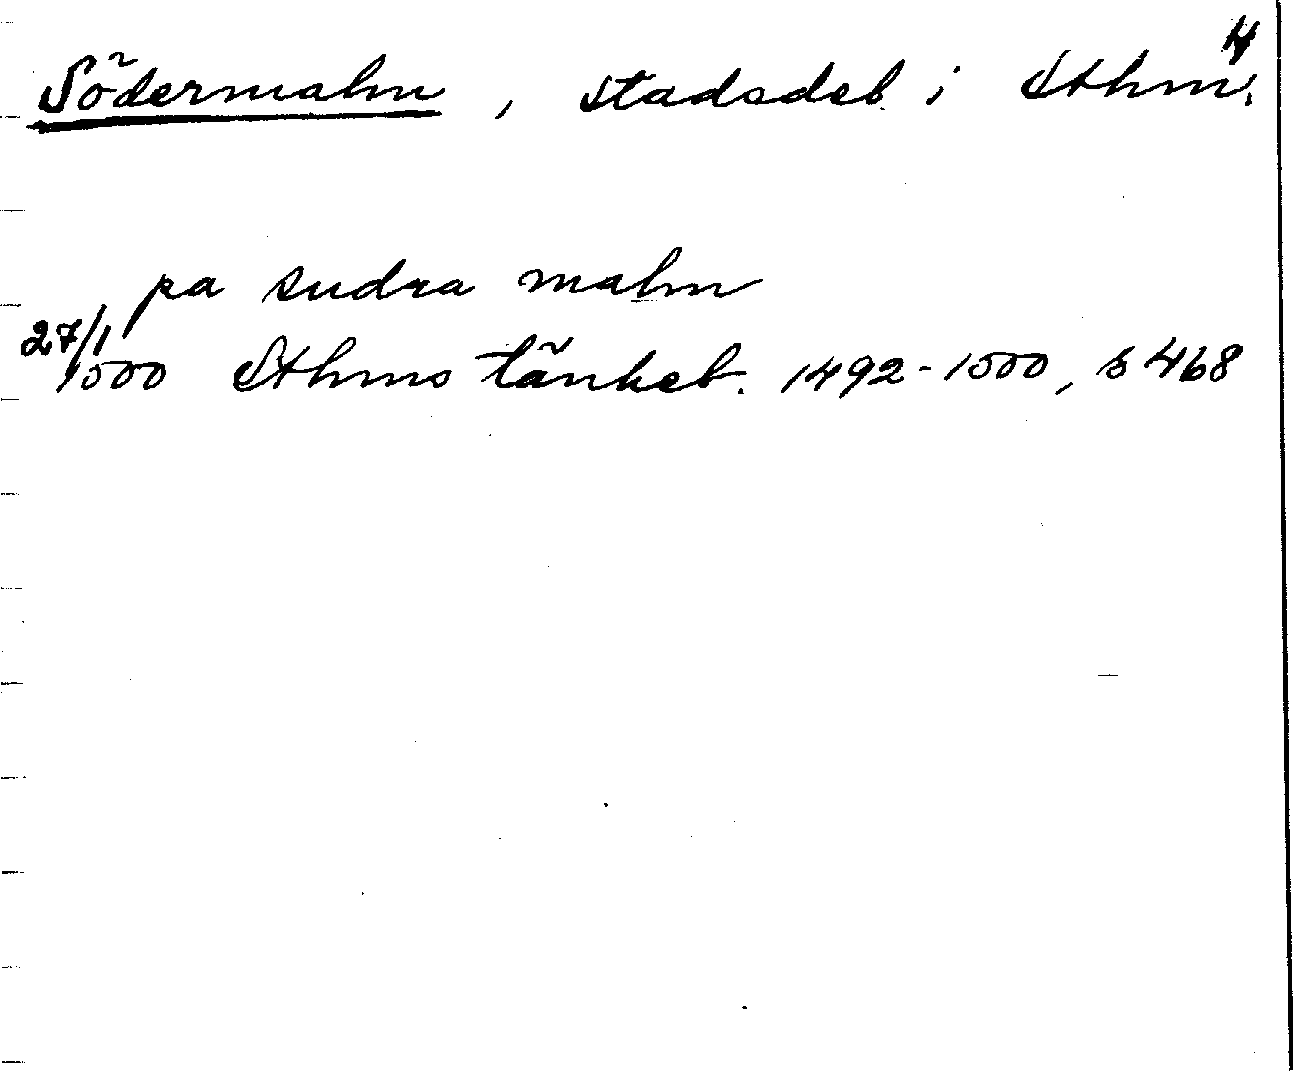 4
Södermalm, stadsdel i Sthm.
pa sudra malm
27/1 1500 Sthms tänkeb. 1492-1500, s 468